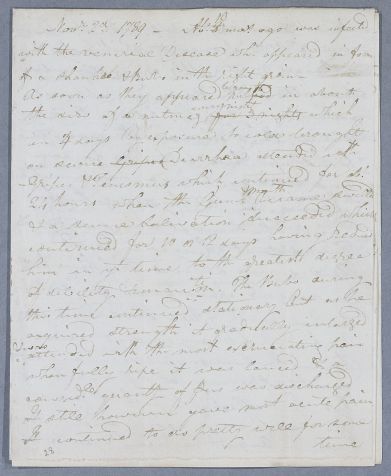 Novr 2d 1789 - Abt mos. ago was infected
with the venereal Disease wh appeared in form
of a chancre & Bubo in the right groin
As soon as they appeared rubbed in about
the size of a nutmeg 3 nights which
in 4 days by exposure to cold brought
on severe Diarrhœa attended with
Gripes & Tenesmus which continued for
24 hours when the Gums became swelled
& a severe Salivation succeeded which
continued for 10 or 12 days having reduced
him in yt time to the greatest degree
of debility & emaciation. The Bubo during
this time continued stationary but as he
acquired strength it gradually enlarged
attended with the most excruciating pain
when fully ripe it was lanced & a
quantity of Pus was discharged
It still however gave most acute pain
It continued to do pretty well for some
time
23